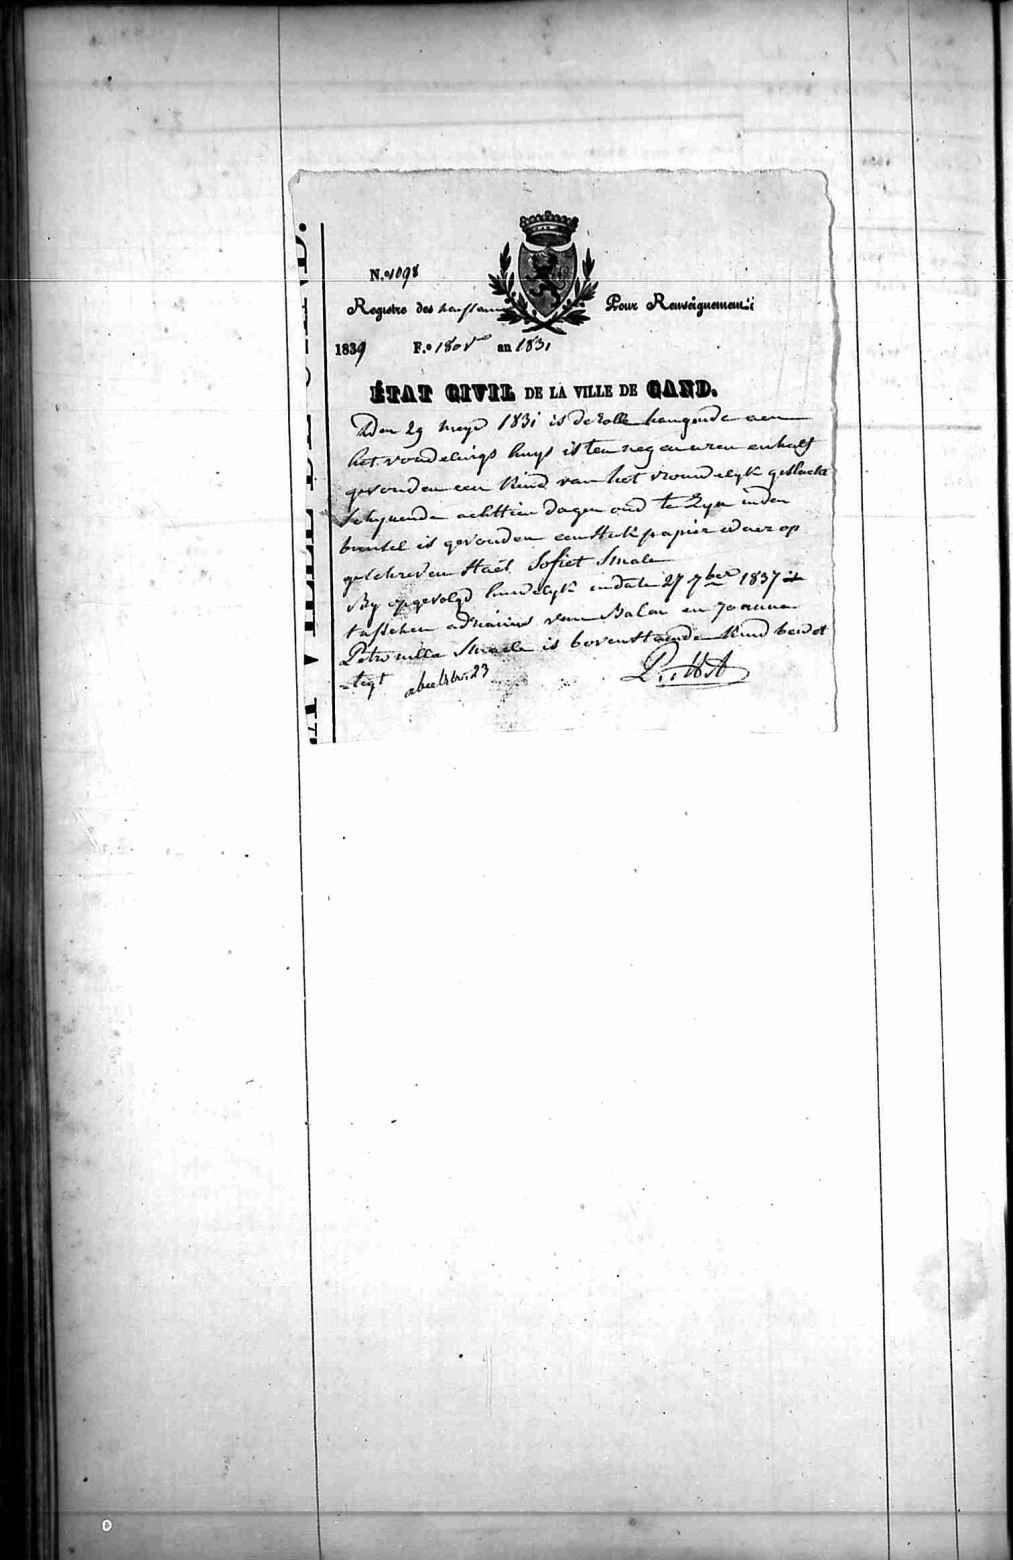 N.o 1098
Registre des naissances Pour Renseignement
1839 F.o 180 vo an 1831
ÉTAT CIVIL DE LA VILLE DE GAND.
Den 29 meye 1831 is de rolle hangende aen
het vondelings huys is ten negen uren en half
gevonden een kind van het vrouwelyk geslacht
schynende achttien dagen oud te zyn in den
bussel is gevonden een stuk papier waer op
geschreven staet Sofiet Smale
By opgevolgd huwelyk in date 27 7ber 1837
tusschen adrianus van Balen en Joanna
Petronilla Smaele is bovenstaende kind gewet
-tigt